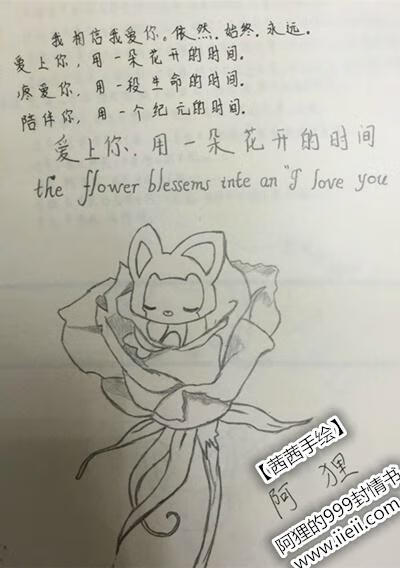 我相信我爱你。依然.始终.永远.
爱上你,用一朵花开的时间.
疼爱你,用一段生命的时间.
陪伴你,用一个纪元的时间.
爱上你、用一朵花开的时间
the flower blessems inte an "I love you
【茜茜手绘】
阿狸
阿狸的999封情书
www.iieii.com